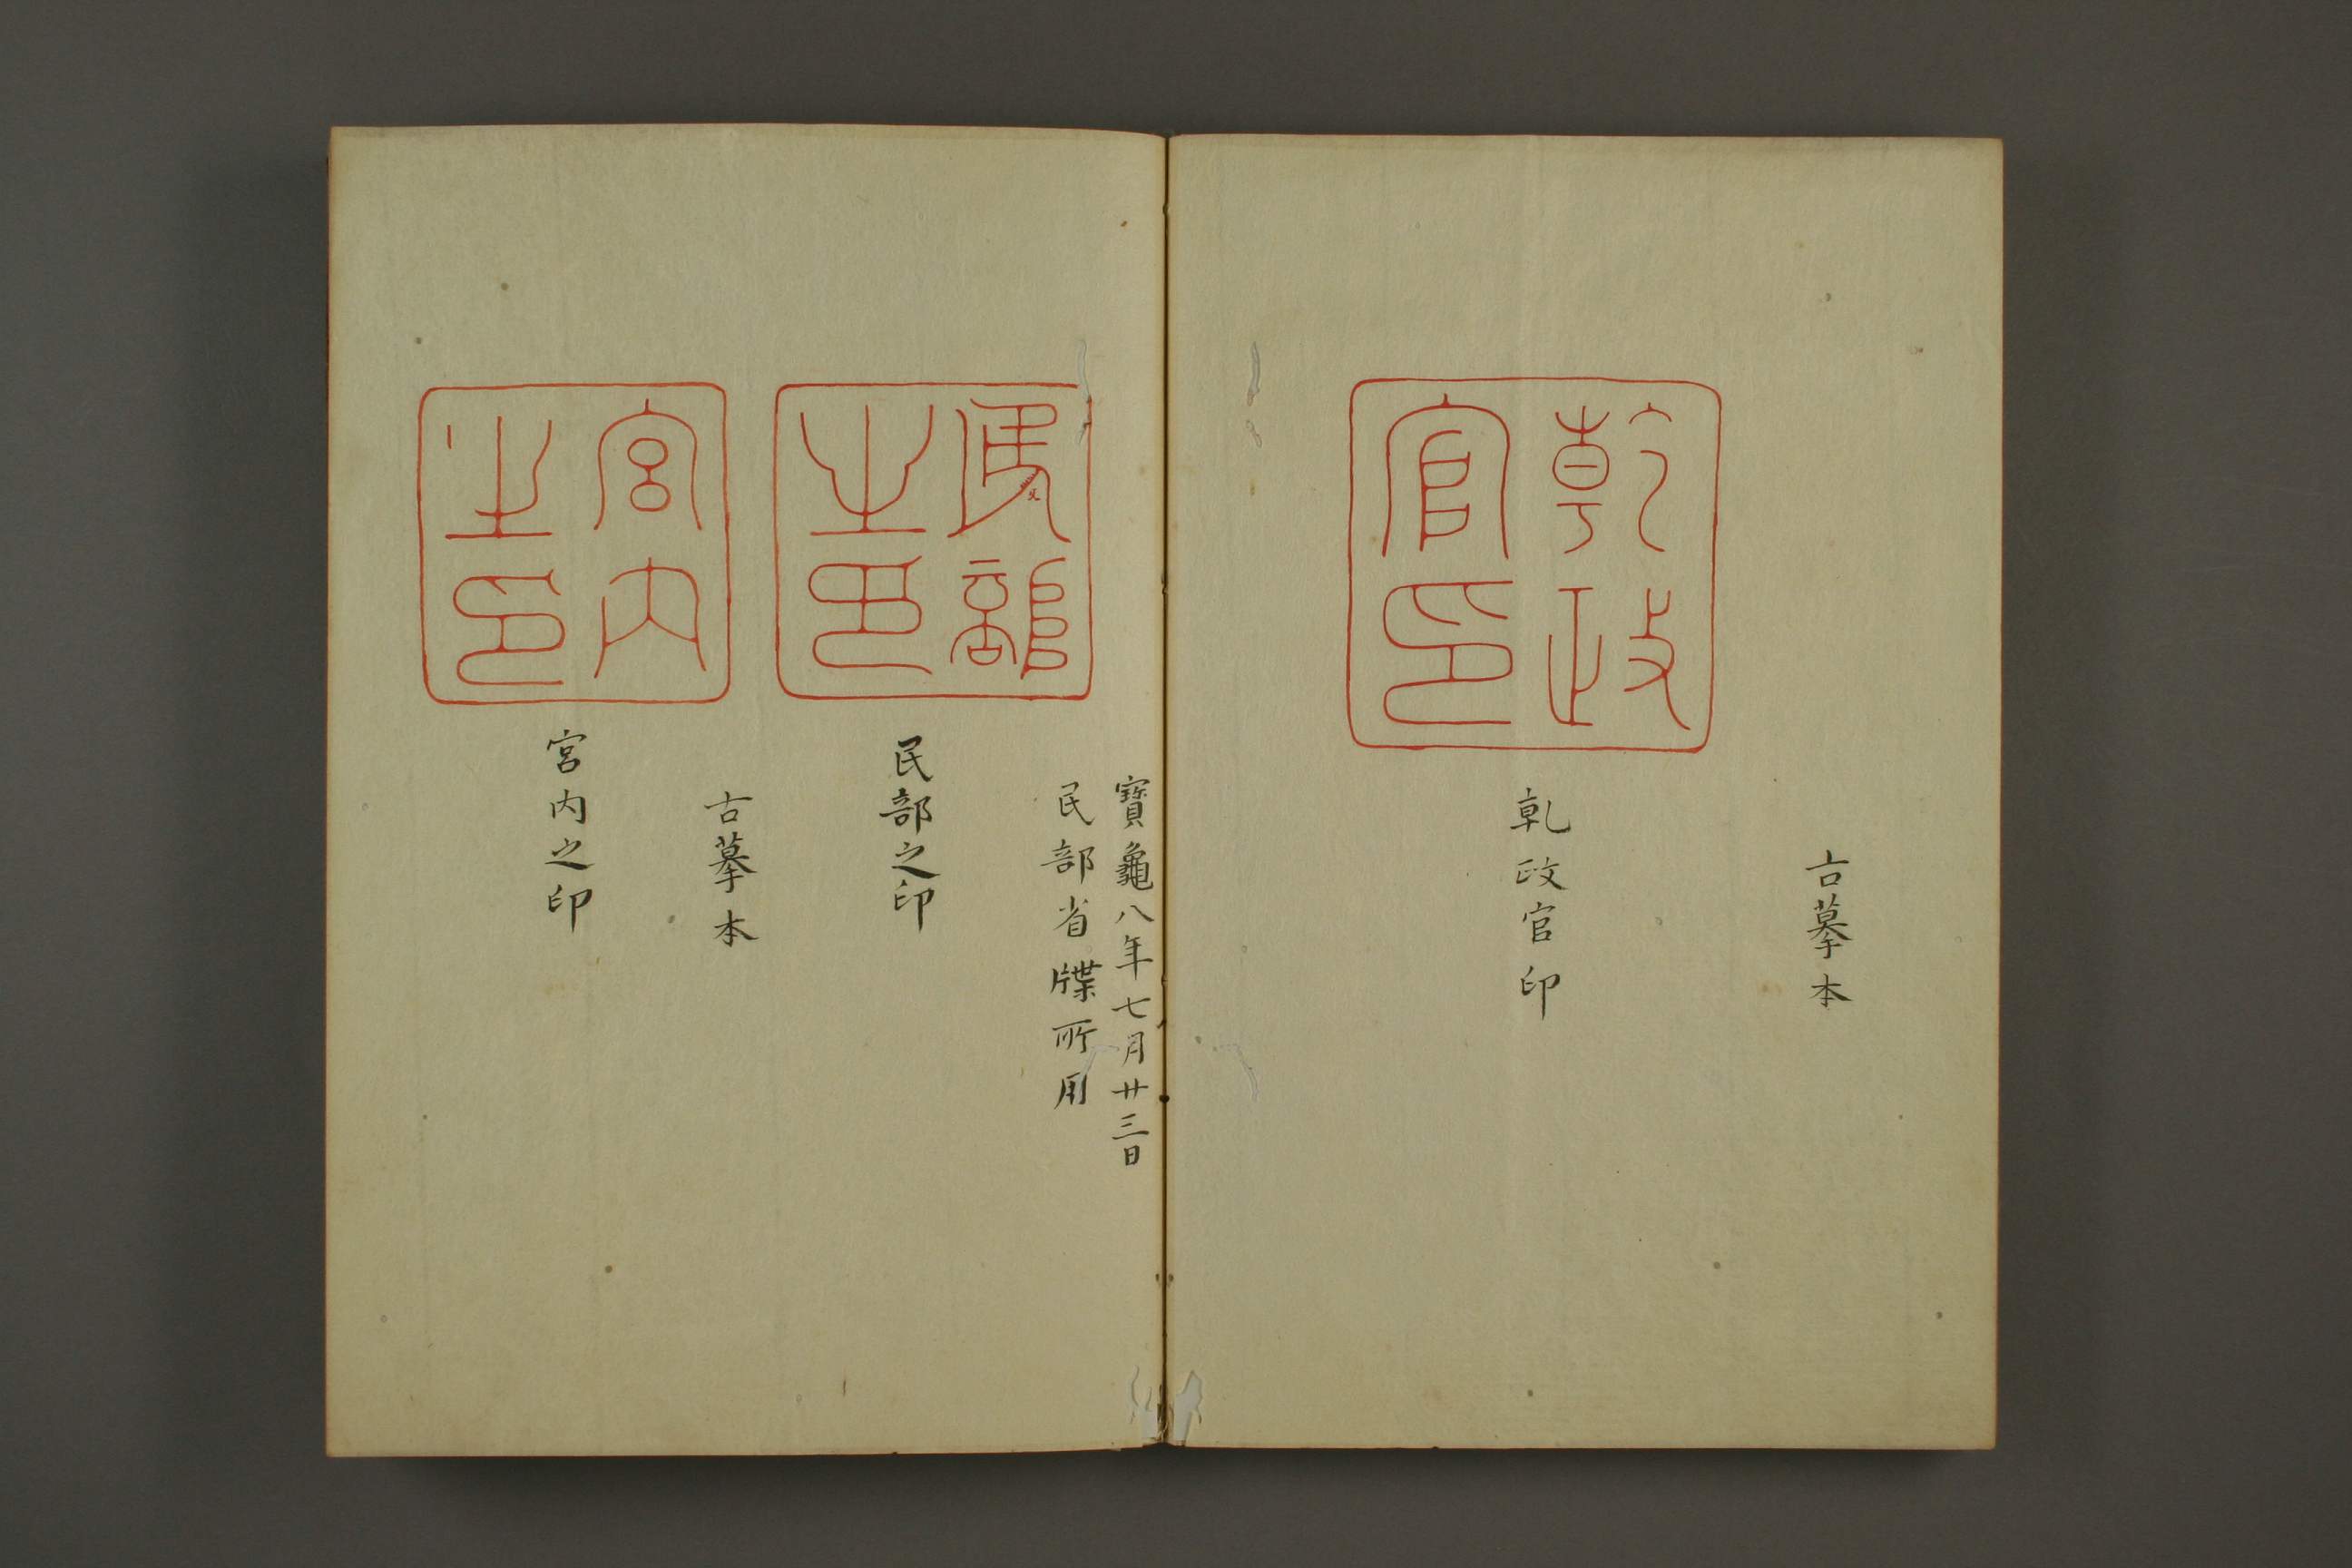 古摹本
乾政
官印
乹政官印
寶龜八年七月廿三日
民部省牒所用
民部
之印
民部之印
古摹本
宮内
之印
宮内之印